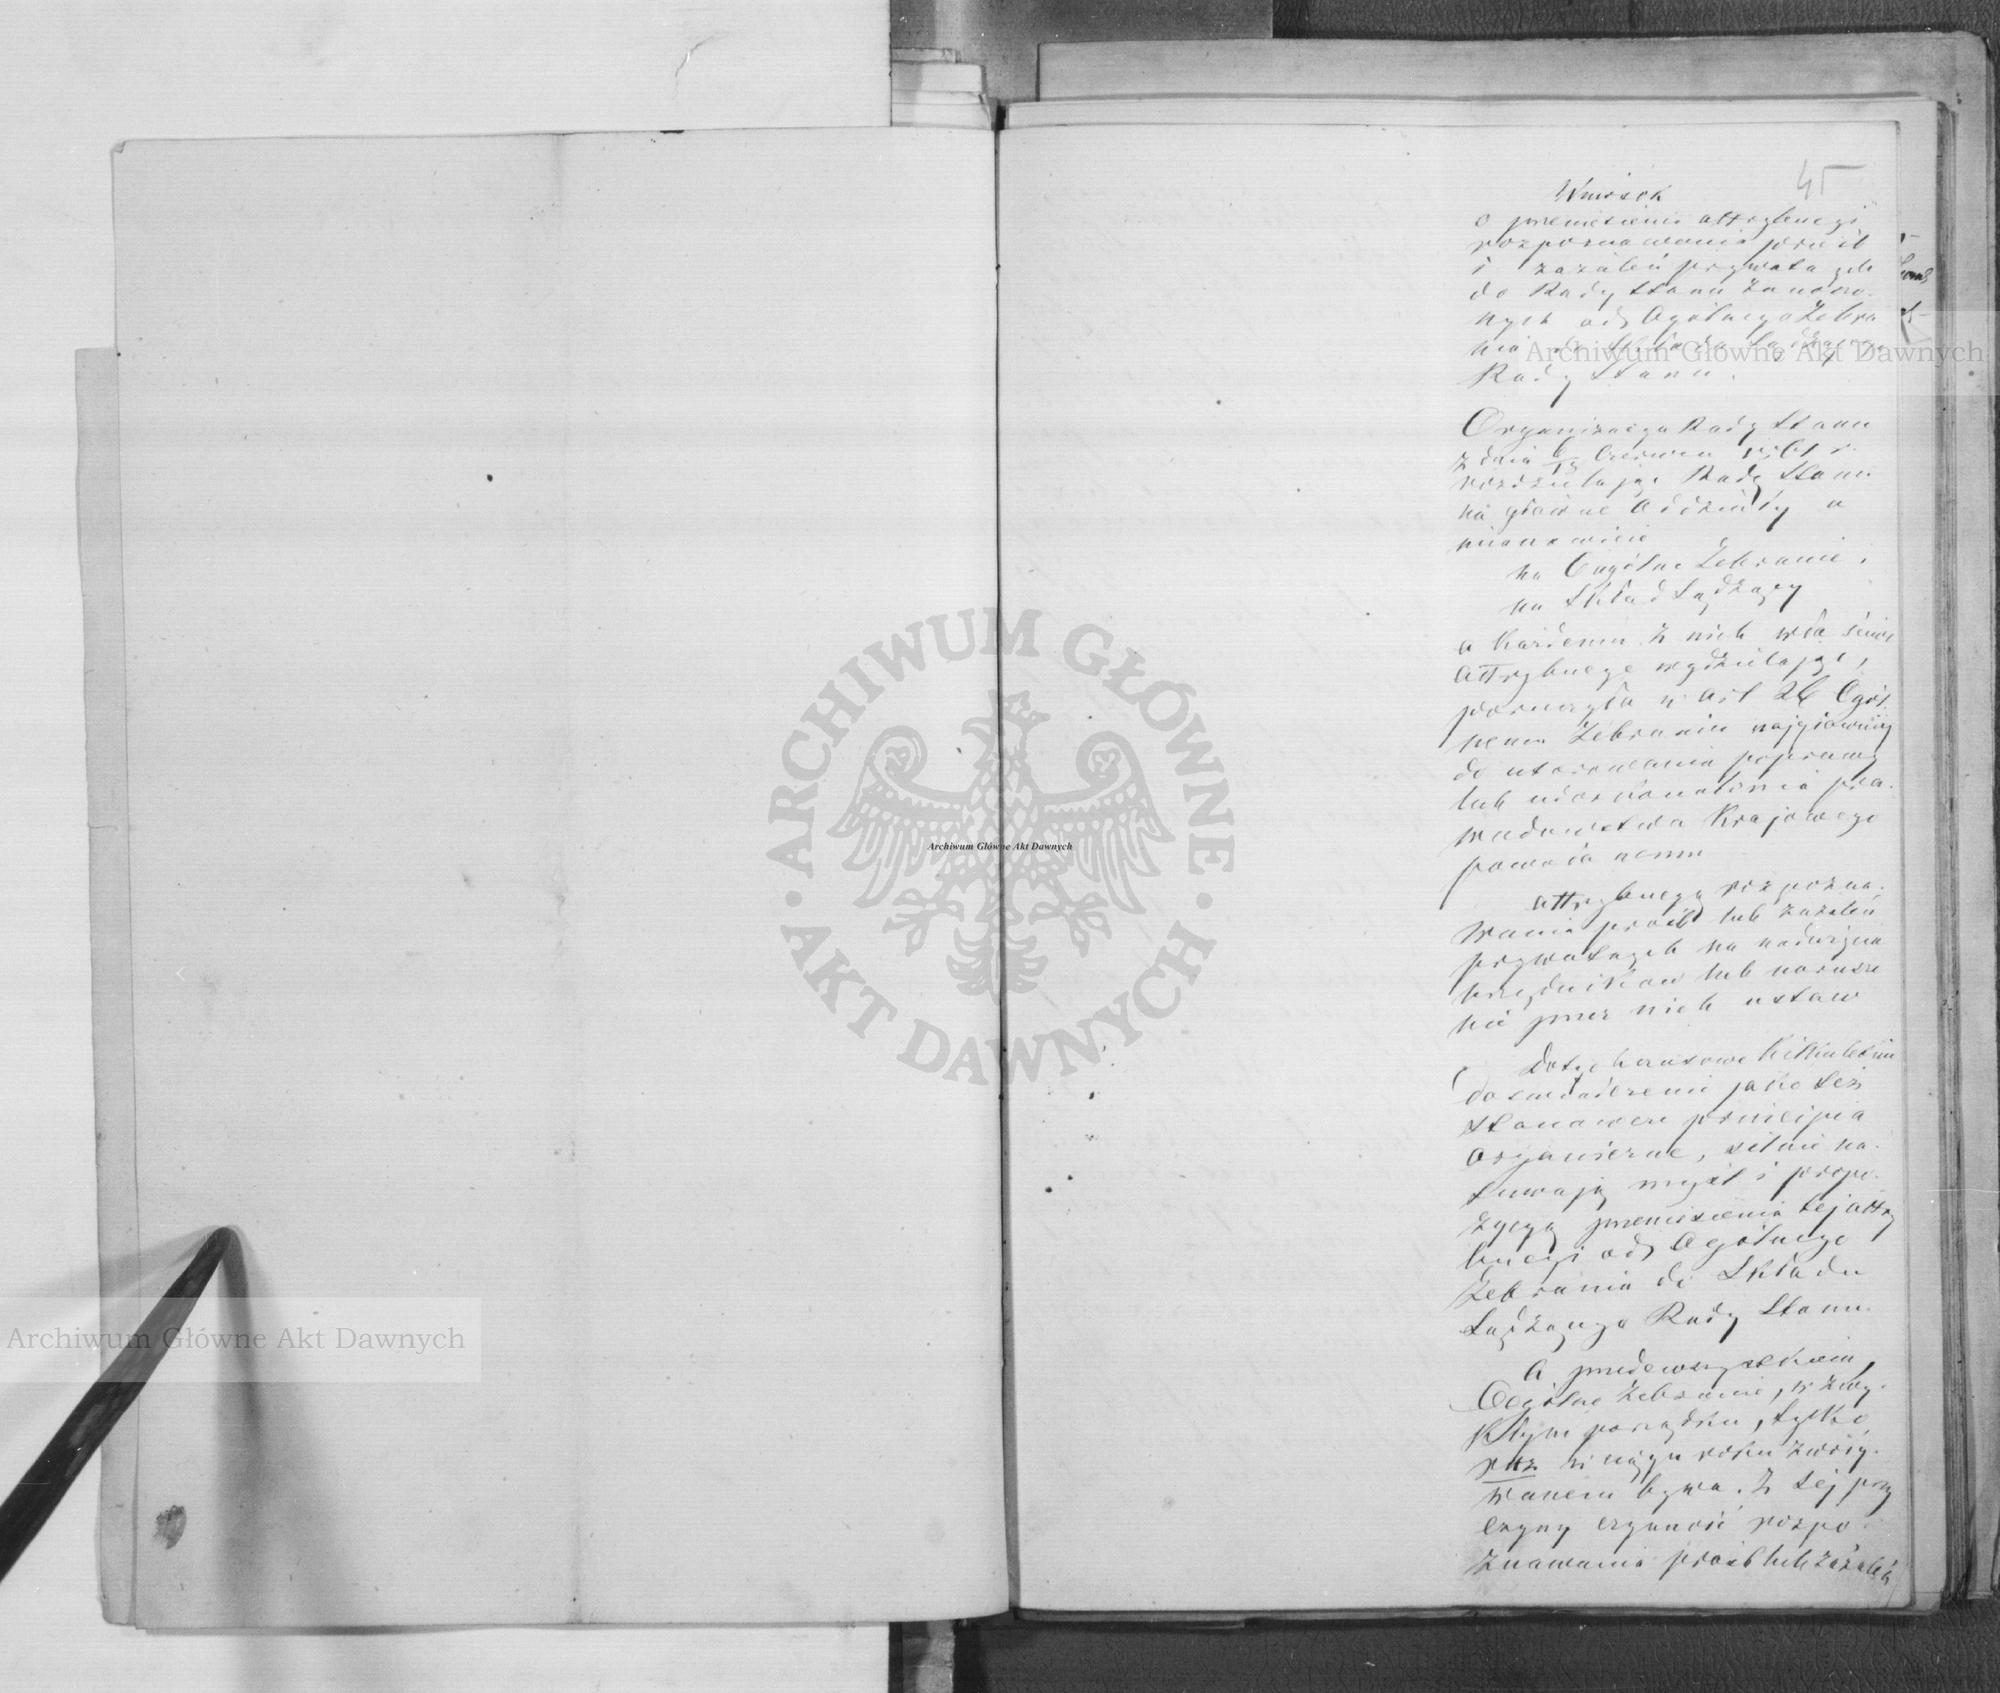 45
Wniosek
o przeniesienie attrybucyi
rozpoznawania próśb
i zażaleń prywatnych
do Rady Stanu zanoszo-
nych od Ogólnego Zebra
nia do Składu Sądzącego
Rady Stanu.
Organizacya Rady Stanu
z dnia Czerwca 1861 r.
rozdzielając Radę Stanu
na główne Oddziały a
mianowicie
na Ogólne Zebranie,
na Skład Sądzący
a każdemu z nich właściwe
attrybucye wydzielając,
poruczyła w Art 26 Ogól
nemu Zebraniu najgłówniej
do utworzenia poprawy
lub udoskonalenia pra-
wodawstwa Krajowego
powołanemu
attrybucyą rozpozna-
wania próśb lub zażaleń
prywatnych na nadużycia
urzędników lub narusze
nie przez nich ustaw
Dotychczasowe kilkuletnie
doświadczenie jako też
stanowcze principia
organiczne, silnie na-
suwają myśl i propo-
zycyą przeniesienia tej attry
bucyi od Ogólnego
Zebrania do Składu
Sądzącego Rady Stanu.
A przedewszystkiem,
Ogólne Zebranie, w zwy-
kłym porządku, tylko
raz w ciągu roku zwoły-
wanem bywa. Z tej przy
czyny czynność rozpo-
znawania próśb lub zażaleń
Archiwum Główne Akt Dawnych
ARCHIWUM GŁÓWNE
AKT DAWNYCH
Archiwum Główne Akt Dawnych
Archiwum Główne Akt Dawnych